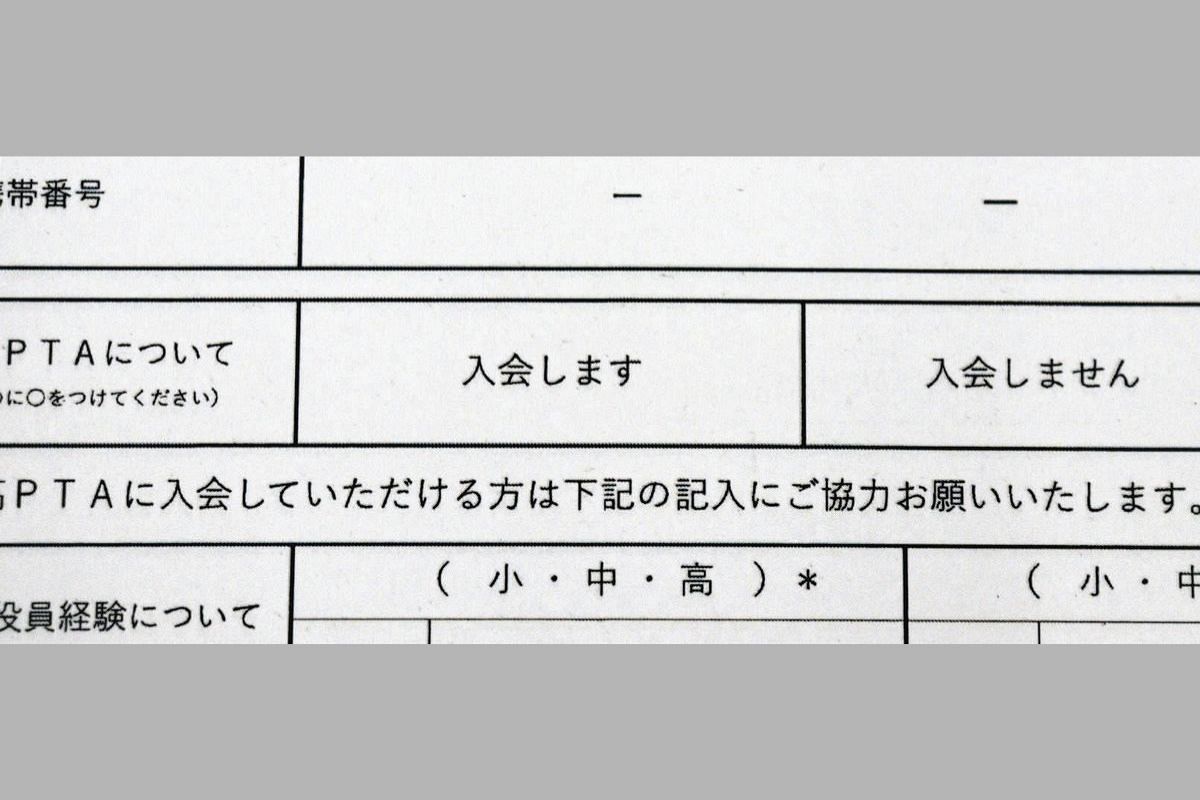 帯番号 ー ー
PTAについて 入会します 入会しません
に○をつけてください)
PTAに入会していただける方は下記の記入にご協力お願いいたします。
(小・中・高)* (小・中
役員経験について